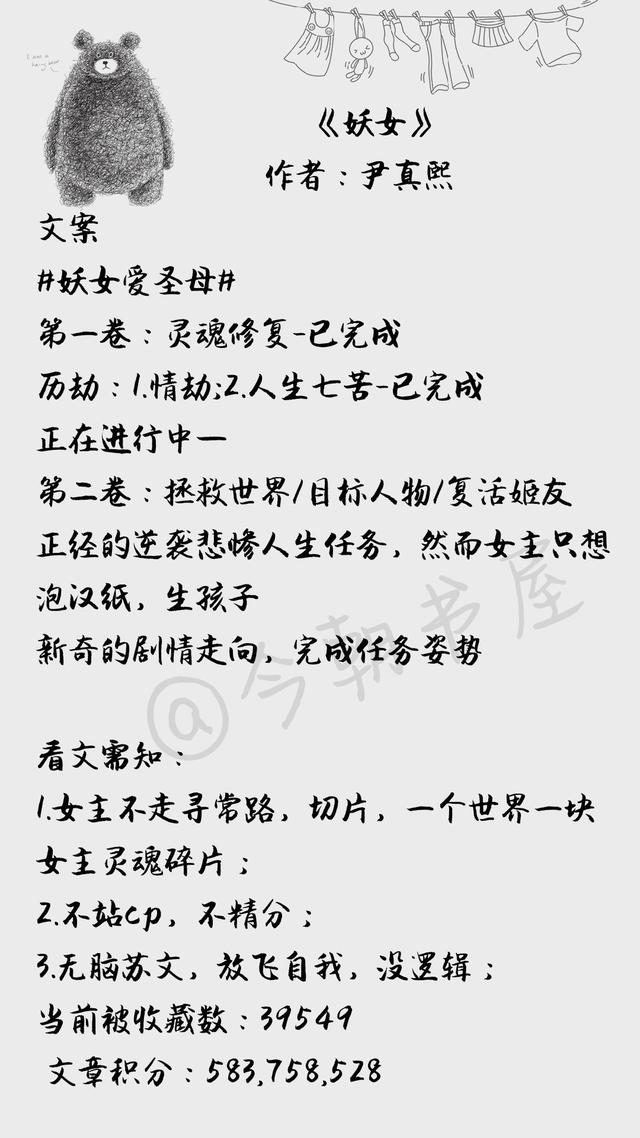 I am a
hairy bear
《妖女》
作者：尹真熙
文案
#妖女爱圣母#
第一卷：灵魂修复-已完成
历劫：1.情劫;2.人生七苦-已完成
正在进行中—
第二卷：拯救世界/目标人物/复活姬友
正经的逆袭悲惨人生任务，然而女主只想
泡汉纸，生孩子
新奇的剧情走向，完成任务姿势
@今朝书屋
看文需知：
1.女主不走寻常路，切片，一个世界一块
女主灵魂碎片；
2.不站cp，不精分；
3.无脑苏文，放飞自我，没逻辑；
当前被收藏数：39549
文章积分：583,758,528